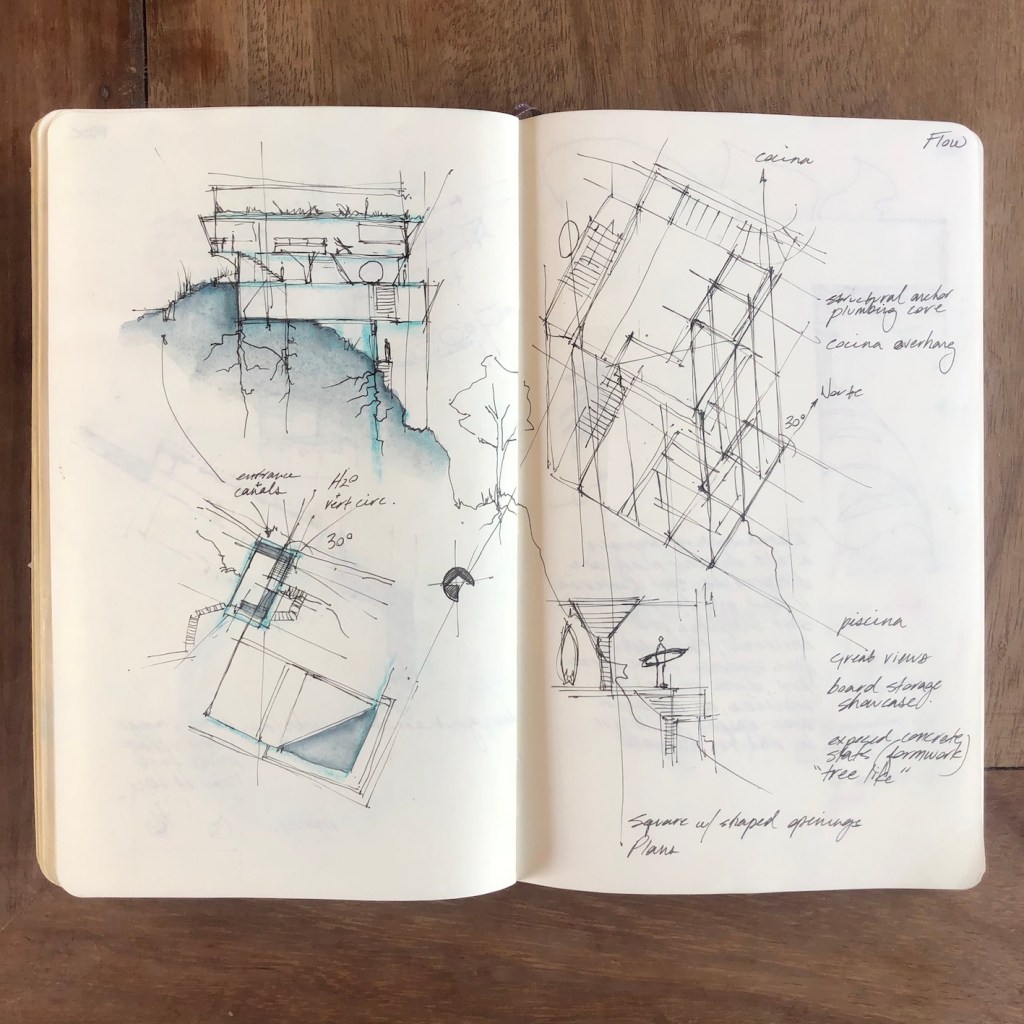 entrance
+
canals
H2O
+
vert circ.
30°
Flow
cocina
structural anchor
plumbing core
cocina overhang
Norte
30°
piscina
Great views
board storage
showcase.
exposed concrete
slats (formwork)
"tree like"
Square w/ shaped openings
Plans